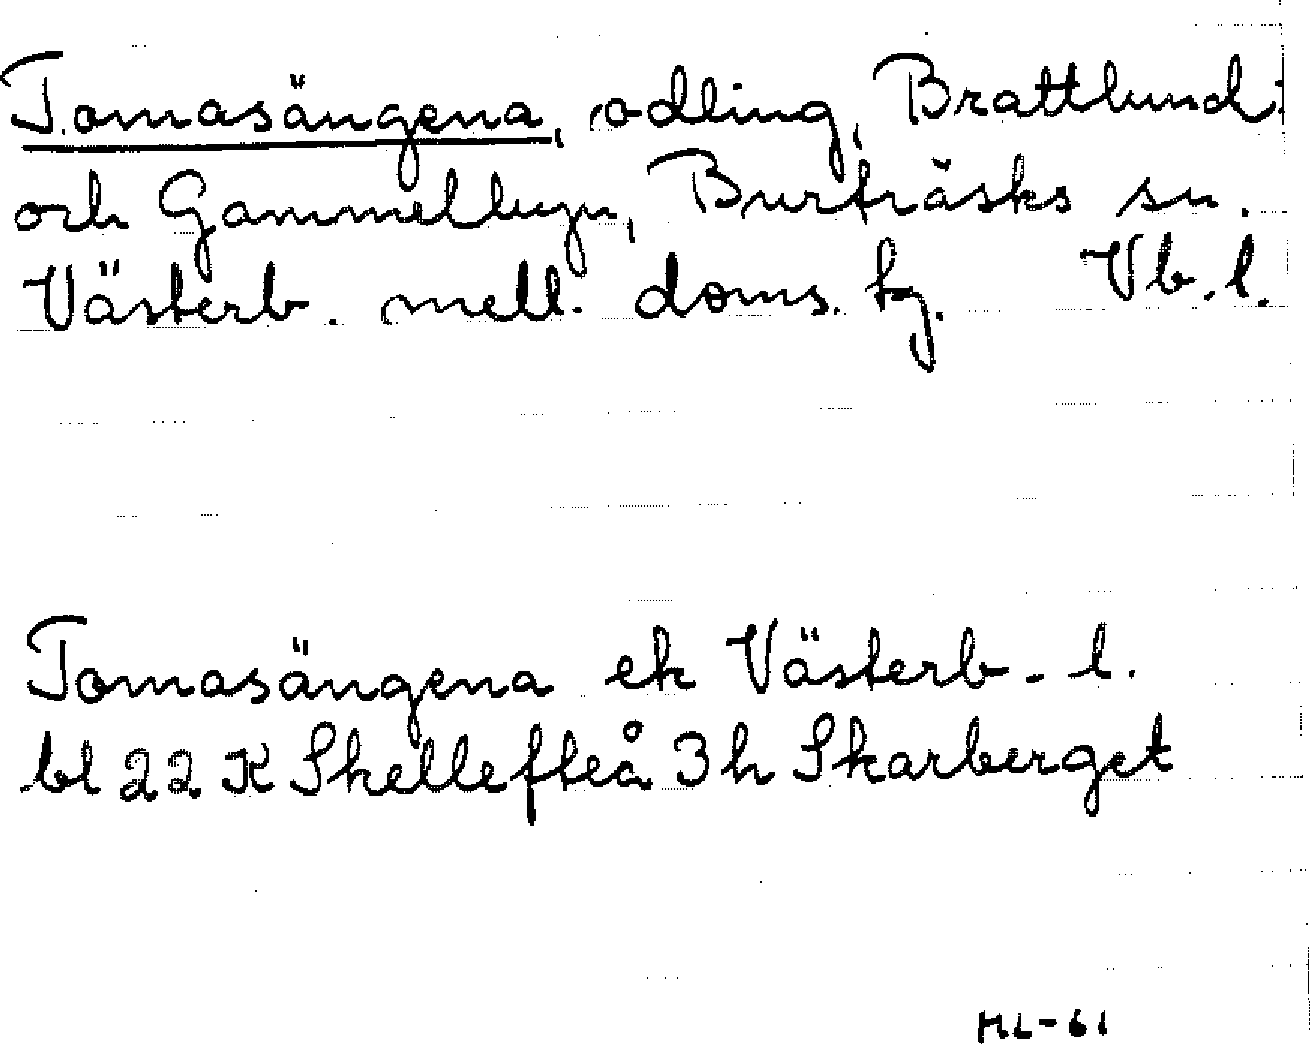 Tomasängena, odling, Brattlund
och Gammelbyn, Burträsks sn.
Västerb. mell. doms. tg. Vb. l.
Tomasängena ek Västerb. l.
bl 22 K Skellefteå 3h Skarberget
ML-61